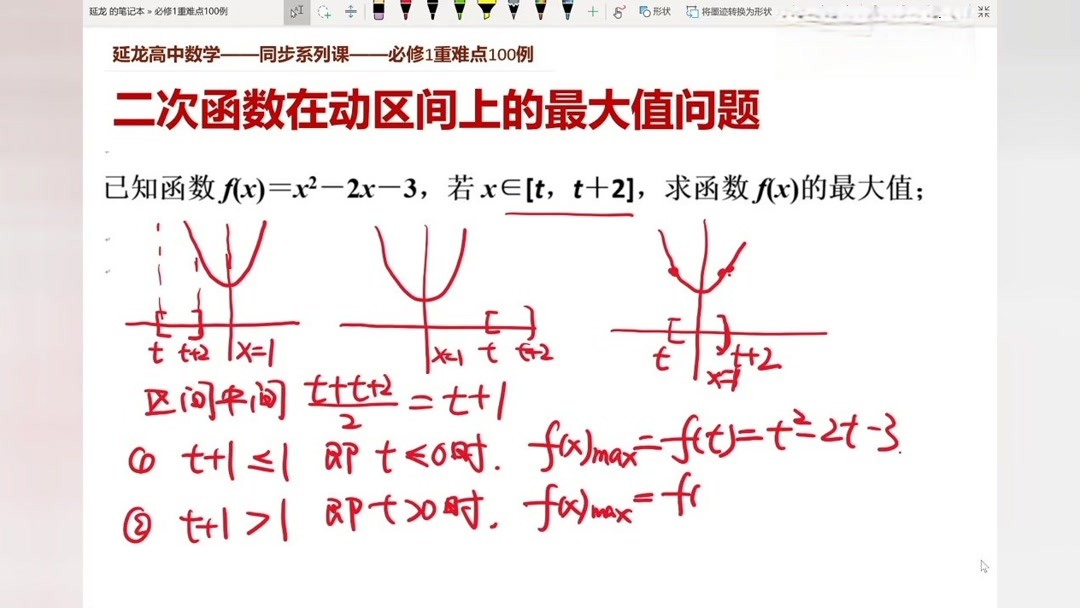 延龙 的笔记本 » 必修1重难点100例
形状 将墨迹转换为形状
延龙高中数学——同步系列课——必修1重难点100例
二次函数在动区间上的最大值问题
已知函数 f(x)=x²-2x-3，若 x∈[t，t+2]，求函数 f(x)的最大值；
t t+2 x=1 x=1 t t+2 t x=1 t+2
区间中间 (t+t+2)/2 = t+1
① t+1≤1 即 t≤0时. f(x)max=f(t)=t²-2t-3.
② t+1>1 即 t>0时. f(x)max=f(